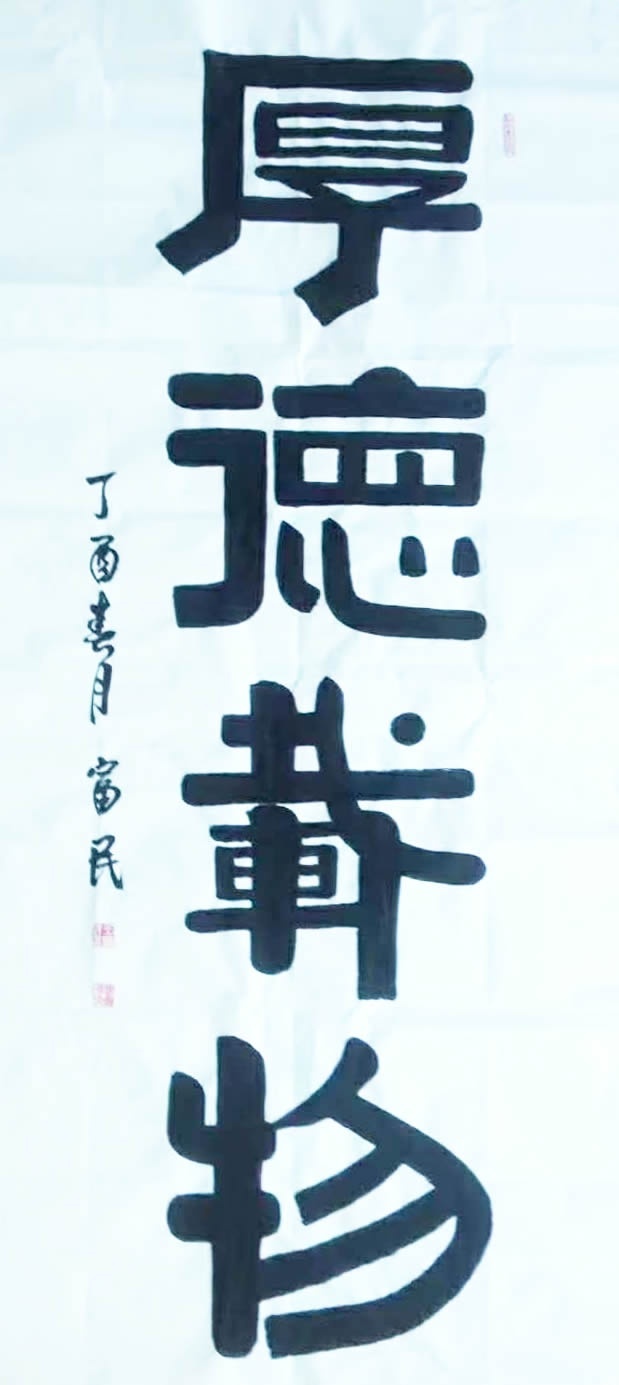 厚德載物
丁酉春月 富民